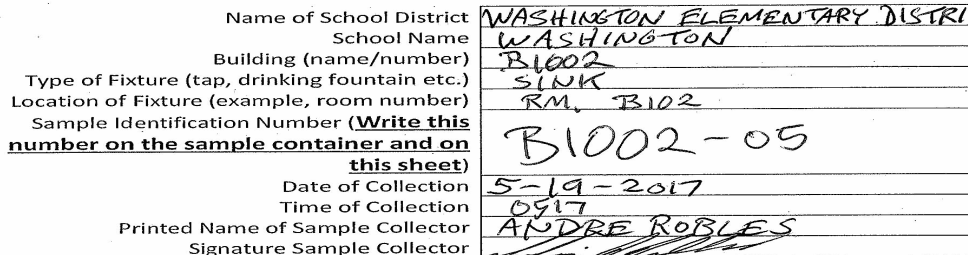 Name of School District WASHINGTON ELEMENTARY DISTRI
School Name WASHINGTON
Building (name/number) B1002
Type of Fixture (tap, drinking fountain etc.) SINK
Location of Fixture (example, room number) RM. B102
Sample Identification Number (Write this
number on the sample container and on B1002-05
this sheet)
Date of Collection 5-19-2017
Time of Collection 0517
Printed Name of Sample Collector ANDRE ROBLES
Signature Sample Collector